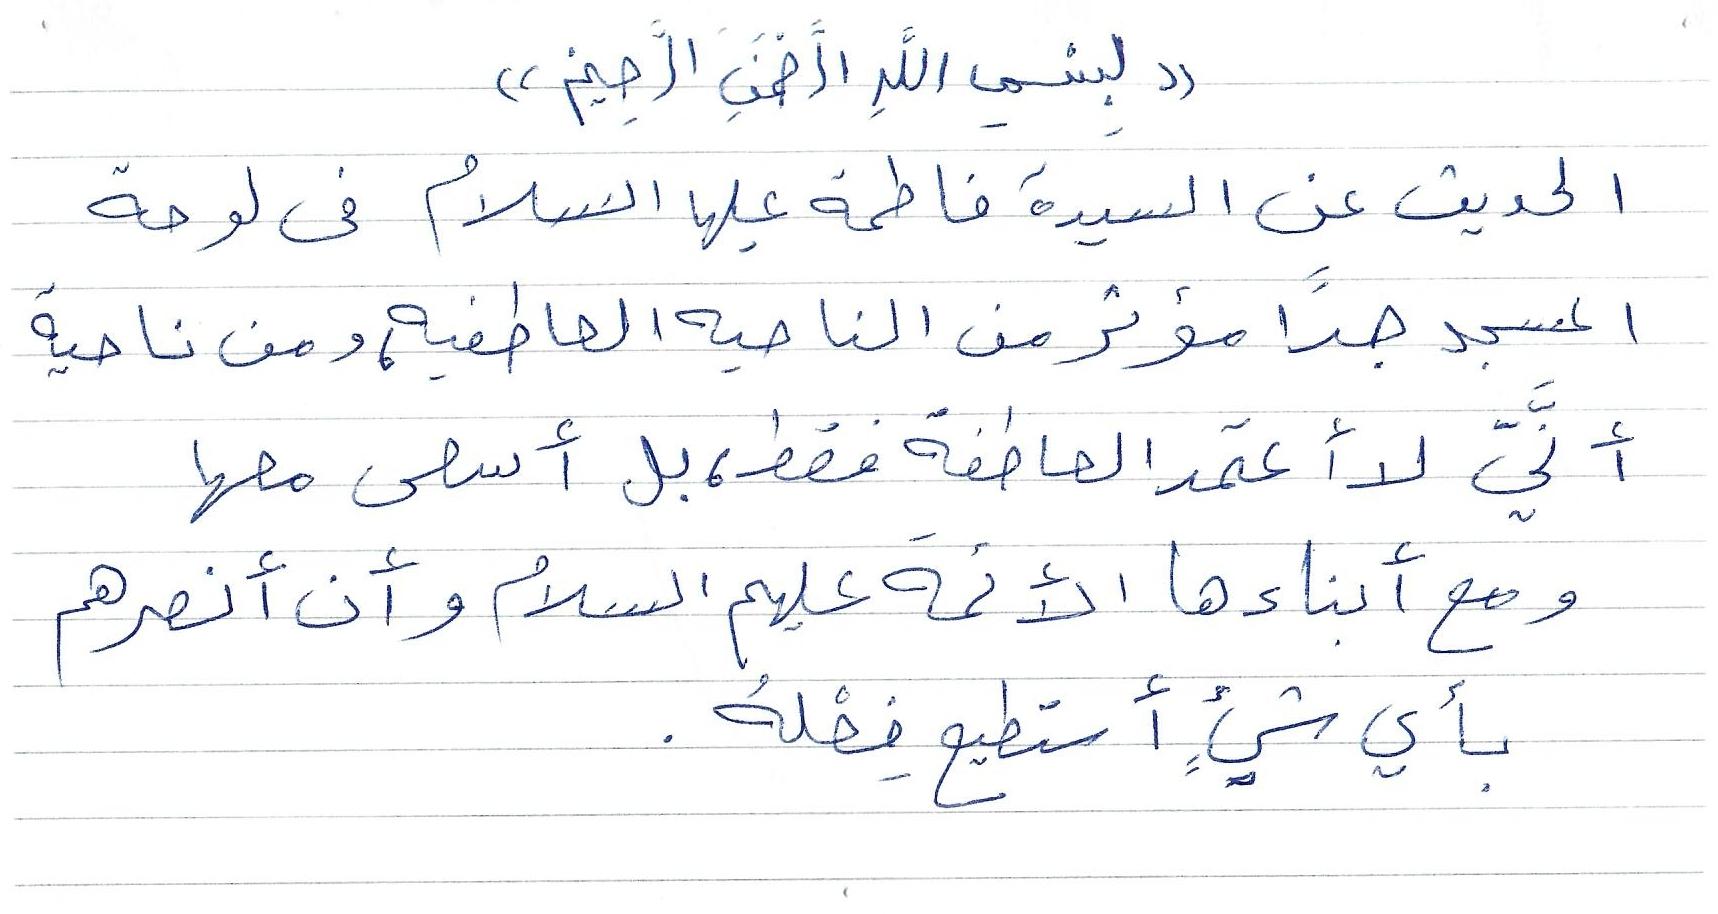 «بِسْمِ اللَّهِ الرَّحْمَنِ الرَّحِيمِ»
الحديث عن السيدة فاطمة عليها السلام في لوحة
المسجد جدًا مؤثر من الناحيه العاطفيه، ومن ناحية
أنَّيّ لا أعتمد العاطفة فقط، بل أسعى معها
ومع أبناءها الأئمة عليهم السلام وأن أنصرهم
بأي شيءٍ أستطيع فِعْلهُ.